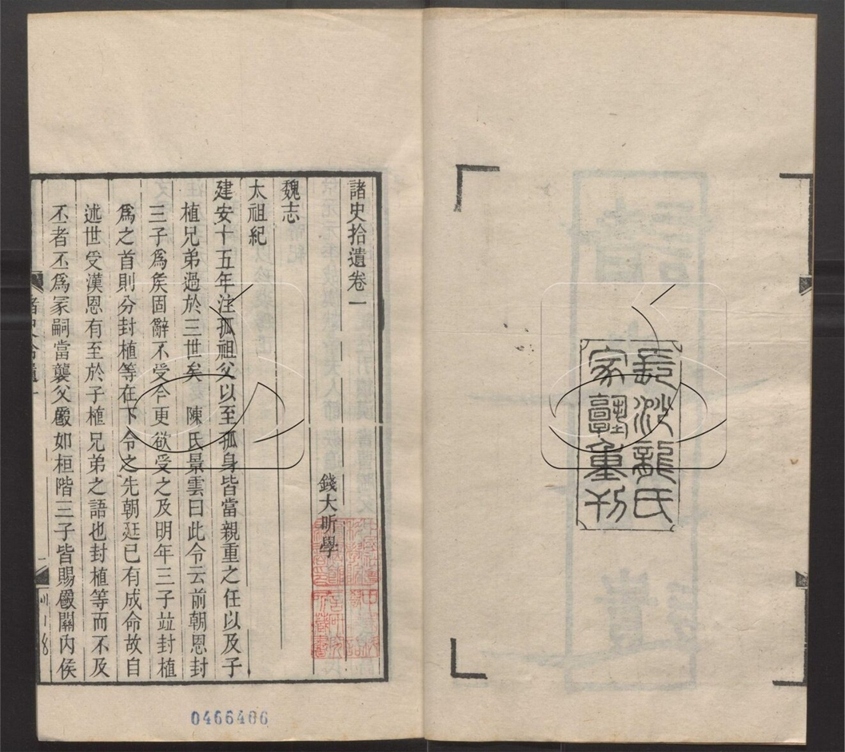 長沙龍氏
家塾重刊
諸史拾遺卷一
錢大昕學
魏志
太祖紀
建安十五年注孤祖父以至孤身皆當親重之任以及子
植兄弟過於三世矣 陳氏景雲曰此令云前朝恩封
三子為矦固辭不受今更欲受之及明年三子竝封植
爲之首則分封植等在下令之先朝廷已有成命故自
述世受漢恩有至於子植兄弟之語也封植等而不及
丕者丕爲冢嗣當襲父爵如桓階三子皆賜爵關内侯
諸史拾遺一
一
0466406